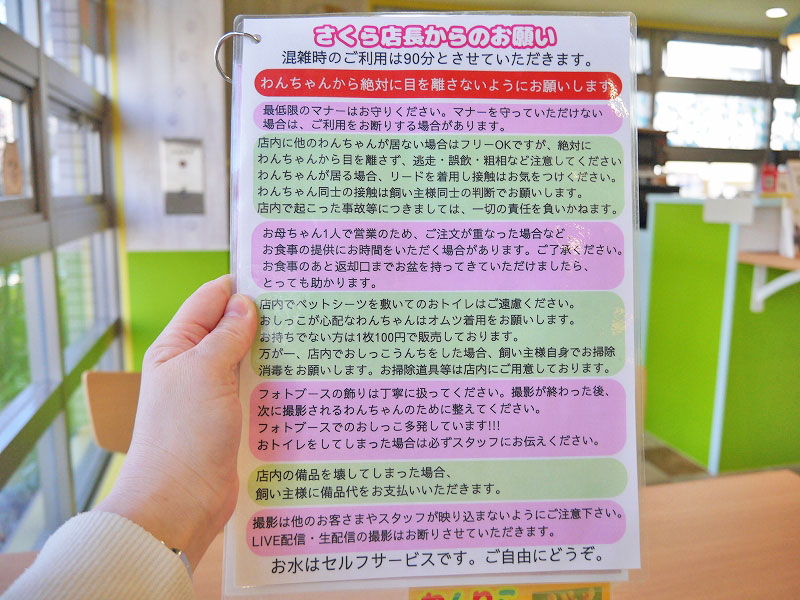 さくら店長からのお願い
混雑時のご利用は90分とさせていただきます。
わんちゃんから絶対に目を離さないようにお願いします
最低限のマナーはお守りください。マナーを守っていただけない
場合は、ご利用をお断りする場合があります。
店内に他のわんちゃんが居ない場合はフリーOKですが、絶対に
わんちゃんから目を離さず、逃走・誤飲・粗相など注意してください
わんちゃんが居る場合、リードを着用し接触はお気をつけください。
わんちゃん同士の接触は飼い主様同士の判断でお願いします。
店内で起こった事故等につきましては、一切の責任を負いかねます。
お母ちゃん1人で営業のため、ご注文が重なった場合など、
お食事の提供にお時間をいただく場合があります。ご了承ください。
お食事のあと返却口までお盆を持ってきていただけましたら、
とっても助かります。
店内でペットシーツを敷いてのおトイレはご遠慮ください。
おしっこが心配なわんちゃんはオムツ着用をお願いします。
お持ちでない方は1枚100円で販売しております。
万が一、店内でおしっこうんちをした場合、飼い主様自身でお掃除
消毒をお願いします。お掃除道具等は店内にご用意しております。
フォトブースの飾りは丁寧に扱ってください。撮影が終わった後、
次に撮影されるわんちゃんのために整えてください。
フォトブースでのおしっこ多発しています!!!
おトイレをしてしまった場合は必ずスタッフにお伝えください。
店内の備品を壊してしまった場合、
飼い主様に備品代をお支払いいただきます。
撮影は他のお客さまやスタッフが映り込まないようにご注意下さい。
LIVE配信・生配信の撮影はお断りさせていただきます。
お水はセルフサービスです。ご自由にどうぞ。